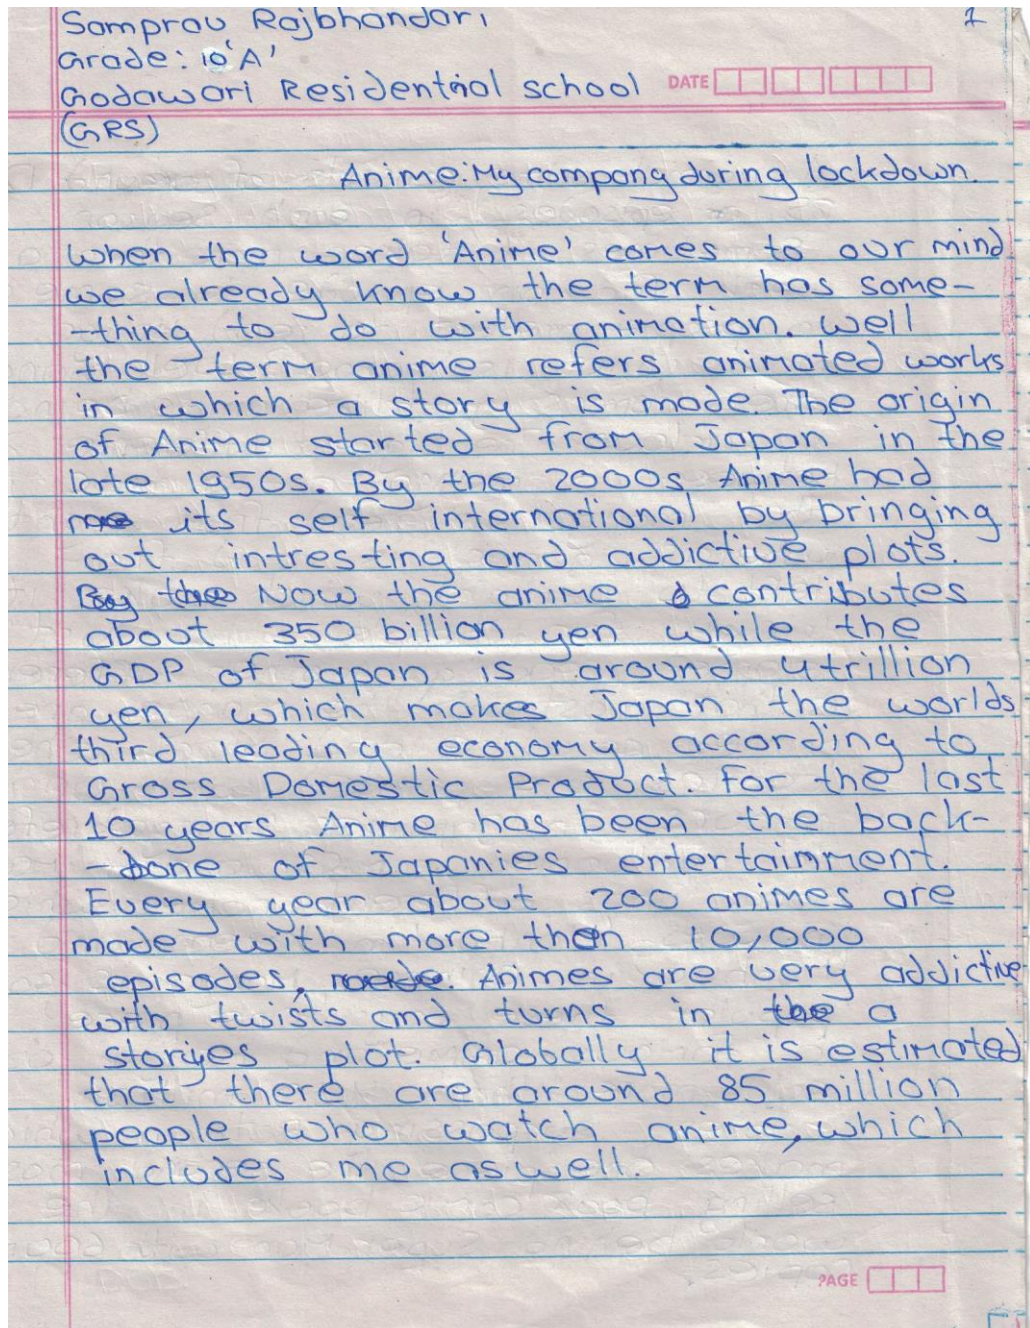 Samprav Rajbhandari 1
Grade: 10 'A'
Godawari Residential school DATE
(GRS)
Anime: My company during lockdown.
When the word 'Anime' comes to our mind
we already know the term has some-
-thing to do with animation. Well
the term anime refers animated works
in which a story is made. The origin
of Anime started from Japan in the
late 1950s. By the 2000s Anime had
its self international by bringing
out intresting and addictive plots.
Now the anime contributes
about 350 billion yen while the
GDP of Japan is around 4 trillion
yen, which makes Japan the worlds
third leading economy according to
Gross Domestic Product. For the last
10 years Anime has been the back-
-bone of Japanies entertainment.
Every year about 200 animes are
made with more then 10,000
episodes. Animes are very addictive
with twists and turns in a
storyes plot. Globally it is estimated
that there are around 85 million
people who watch anime, which
includes me as well.
PAGE